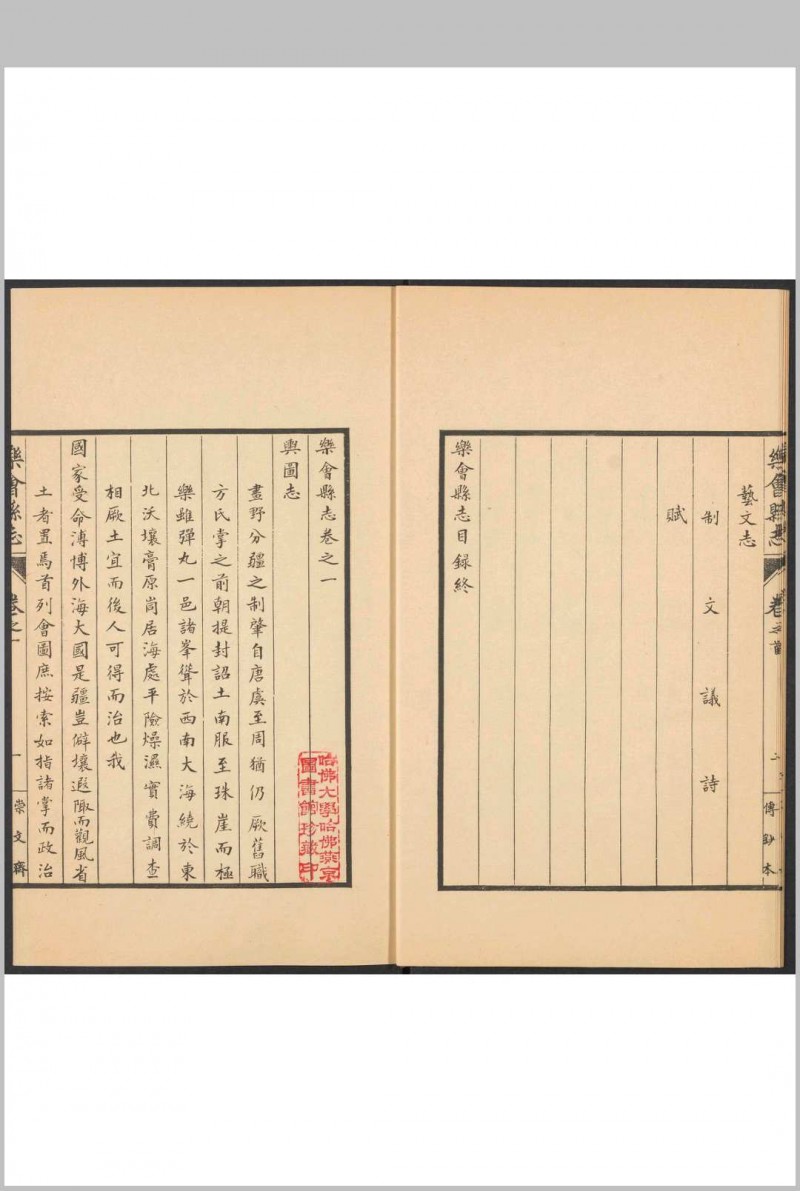 樂會縣志 卷之首 傳鈔本
藝文志
制 文 議 詩
賦
樂會縣志目錄終
樂會縣志卷之一
輿圖志
畫野分疆之制肇自唐虞至周猶仍厥舊職
方氏掌之前朝提封詔土南服至珠崖而極
樂雖彈丸一邑諸峯聳於西南大海繞於東
北沃壤膏原尚居海處平險燥濕實費調查
相厥土宜而後人可得而治也我
國家受命溥博外海大國是疆豈僻壤遐陬而觀風省
土者置焉首列會圖庶按索如指諸掌而政治
樂會縣志 卷之一 一 崇文齋
哈佛大學哈佛燕京
圖書館珍藏印